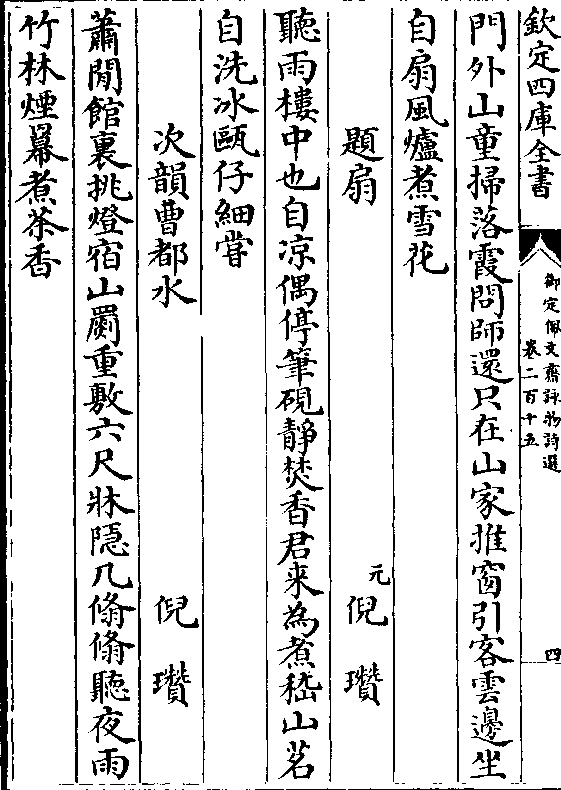 欽定四庫全書
御定佩文齋詠物詩選
卷二百十五
四
門外山童掃落霞問師還只在山家推窗引客雲邊坐
自扇風爐煮雪花
題扇 元 倪瓚
聽雨樓中也自凉偶停筆硯靜焚香君来為煮嵇山茗
自洗冰甌仔細嘗
次韻曹都水 倪瓚
蕭閒館裏挑燈宿山罽重敷六尺牀隱几翛翛聽夜雨
竹林煙羃煮茶香